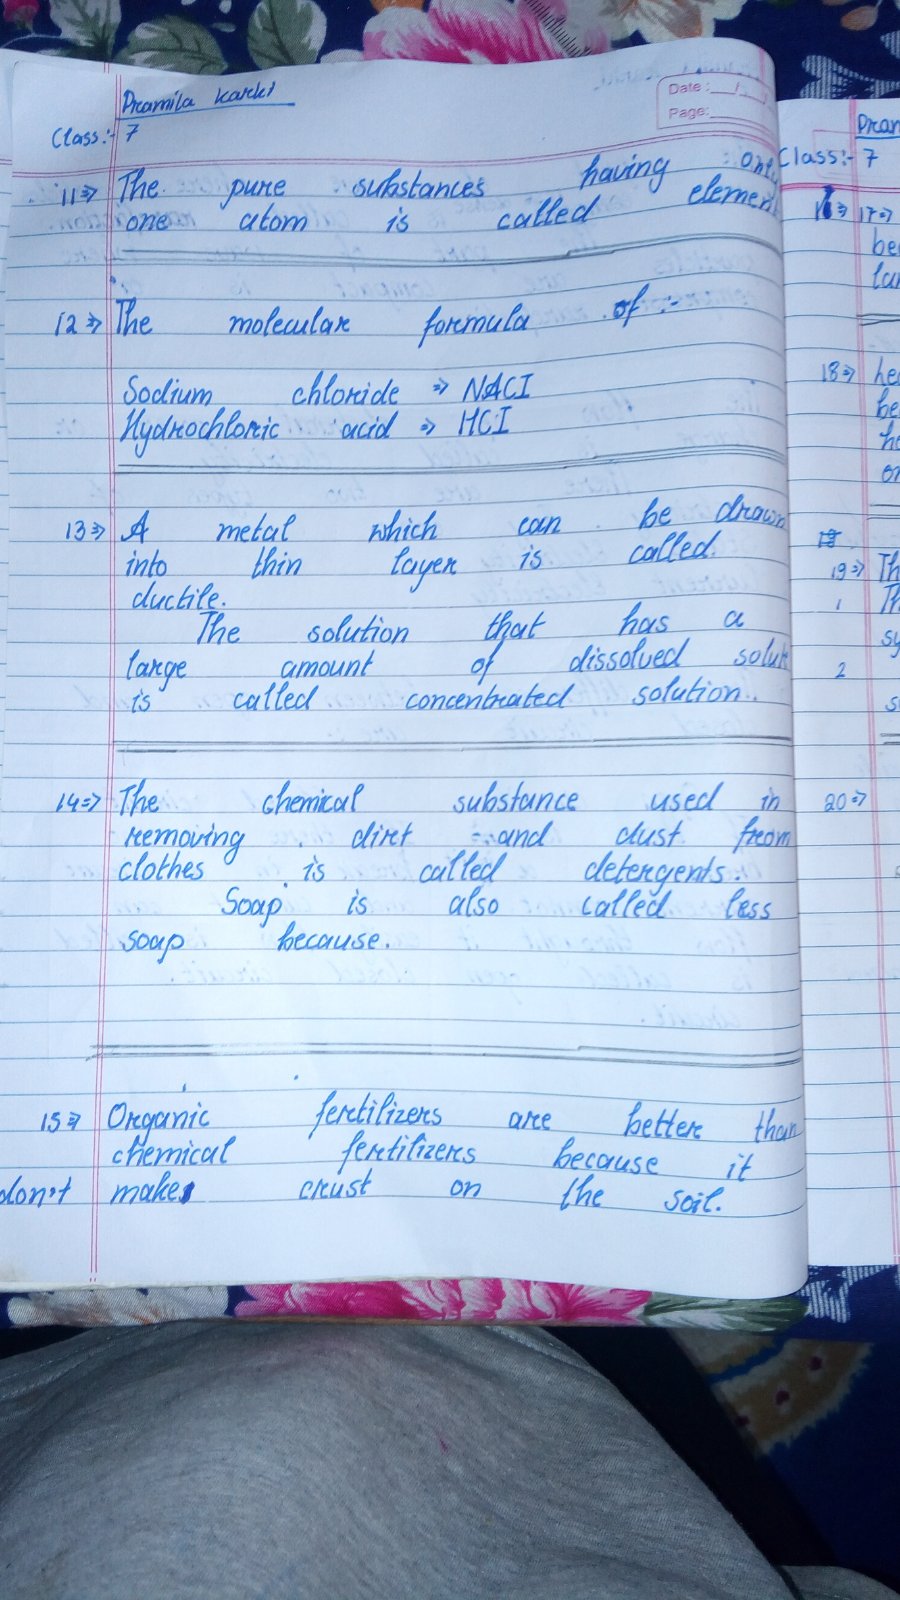 Pramila Karki
Class:- 7
Date:__/__/__
Page:______
11=> The pure substances having only
one atom is called element
12=> The molecular formula of :-
Sodium chloride => NACI
Hydrochloric acid => HCI
13=> A metal which can be drawn
into thin layer is called
ductile.
The solution that has a
large amount of dissolved solut
is called concentrated solution.
14=> The chemical substance used in
removing dirt and dust from
clothes is called detergents.
Soap is also called less
soap because.
15=> Organic fertilizers are better than
chemical fertilizers because it
don't make crust on the soil.
Class:- 7
17=>
18=>
19=> Th
1 Th
2
20=>